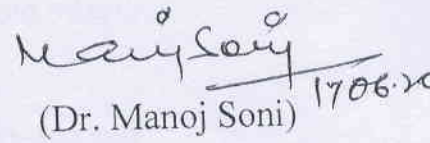 Manoj Soni
1706.20
(Dr. Manoj Soni)